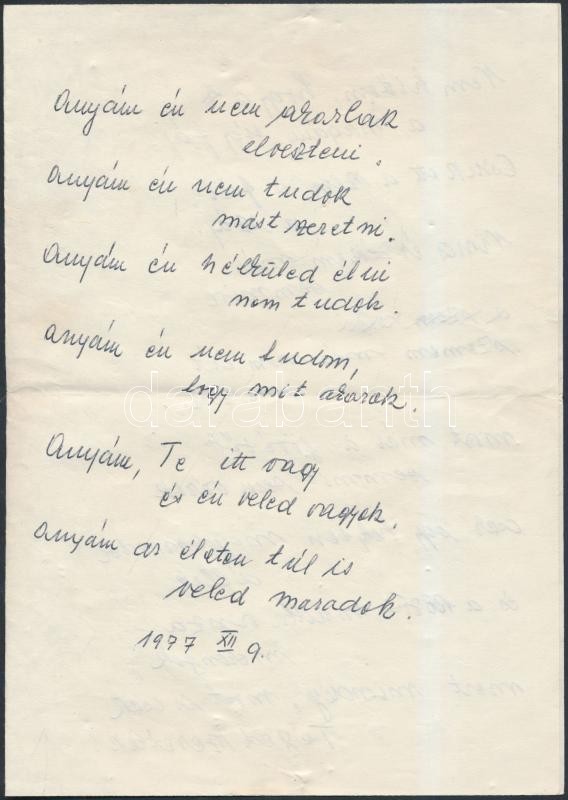 Anyám én nem akarlak
elveszteni.
Anyám én nem tudok
mást szeretni.
Anyám én nélküled élni
nem tudok.
Anyám én nem tudom,
hogy mit akarok.
Anyám, Te itt vagy
és én veled vagyok.
Anyám az életen túl is
veled maradok.
1977 XII 9.
darabanth